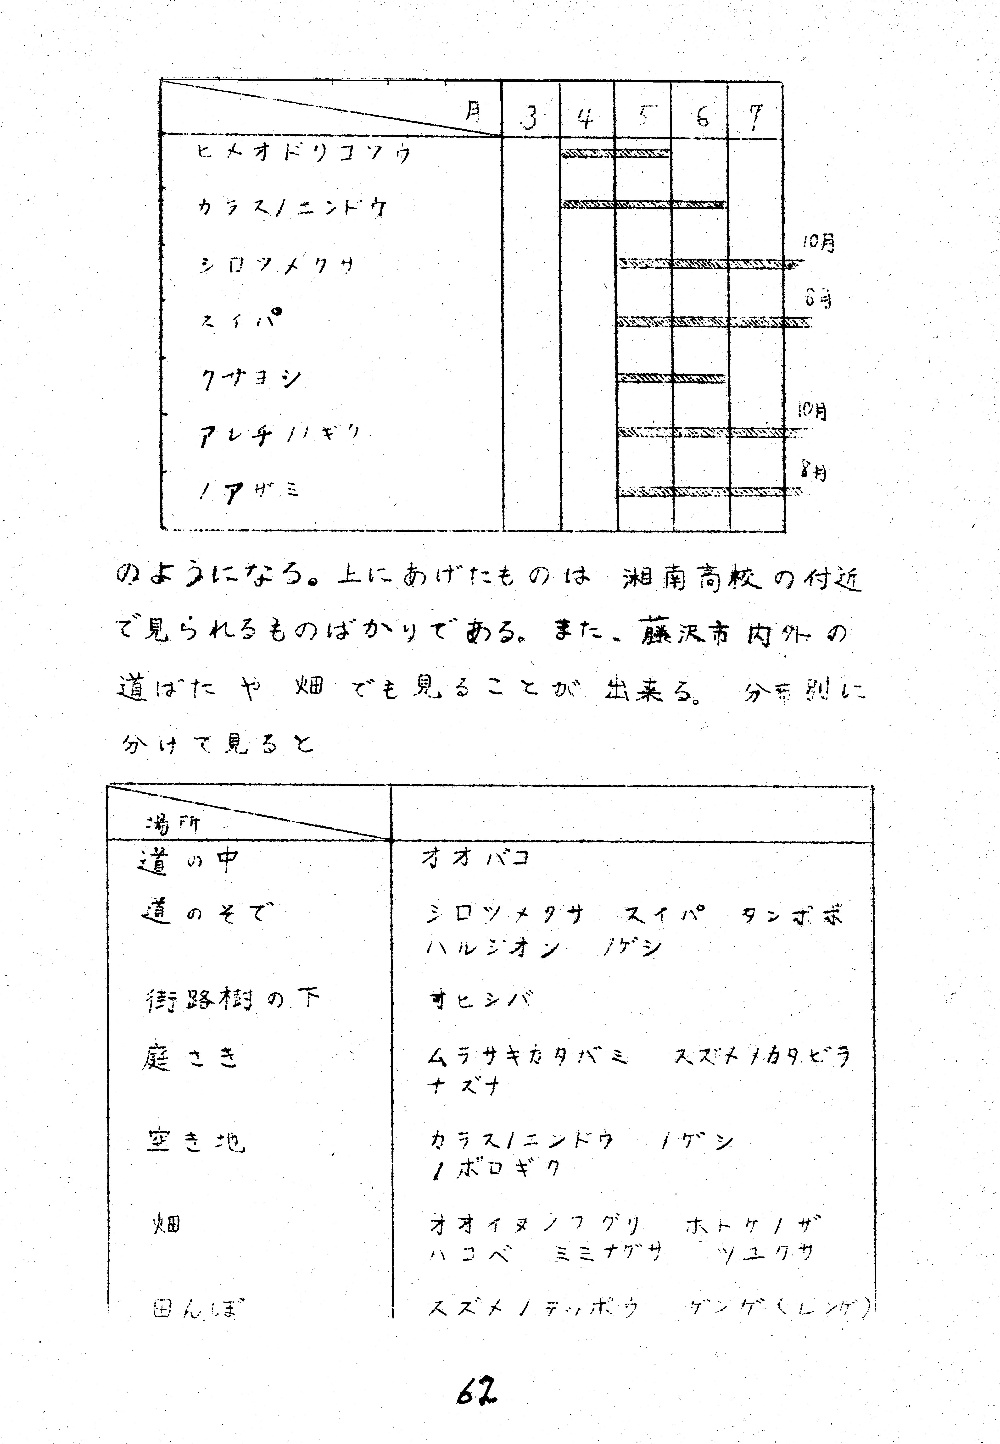 月 3 4 5 6 7
ヒメオドリコソウ
カラスノエンドウ
シロツメクサ 10月
スイバ 8月
クサヨシ
アレチノギク 10月
ノアザミ 8月
のようになる。上にあげたものは 湘南高校の付近
で見られるものばかりである。また、藤沢市内外の
道ばたや 畑でも見ることが出来る。 分布別に
分けて見ると
場所
道の中 オオバコ
道のそで シロツメクサ スイバ タンポポ
ハルジオン ノゲシ
街路樹の下 オヒシバ
庭さき ムラサキカタバミ スズメノカタビラ
ナズナ
空き地 カラスノエンドウ ノゲシ
ノボロギク
畑 オオイヌノフグリ ホトケノザ
ハコベ ミミナグサ ツユクサ
田んぼ スズメノテッポウ ゲンゲ(レンゲ)
62